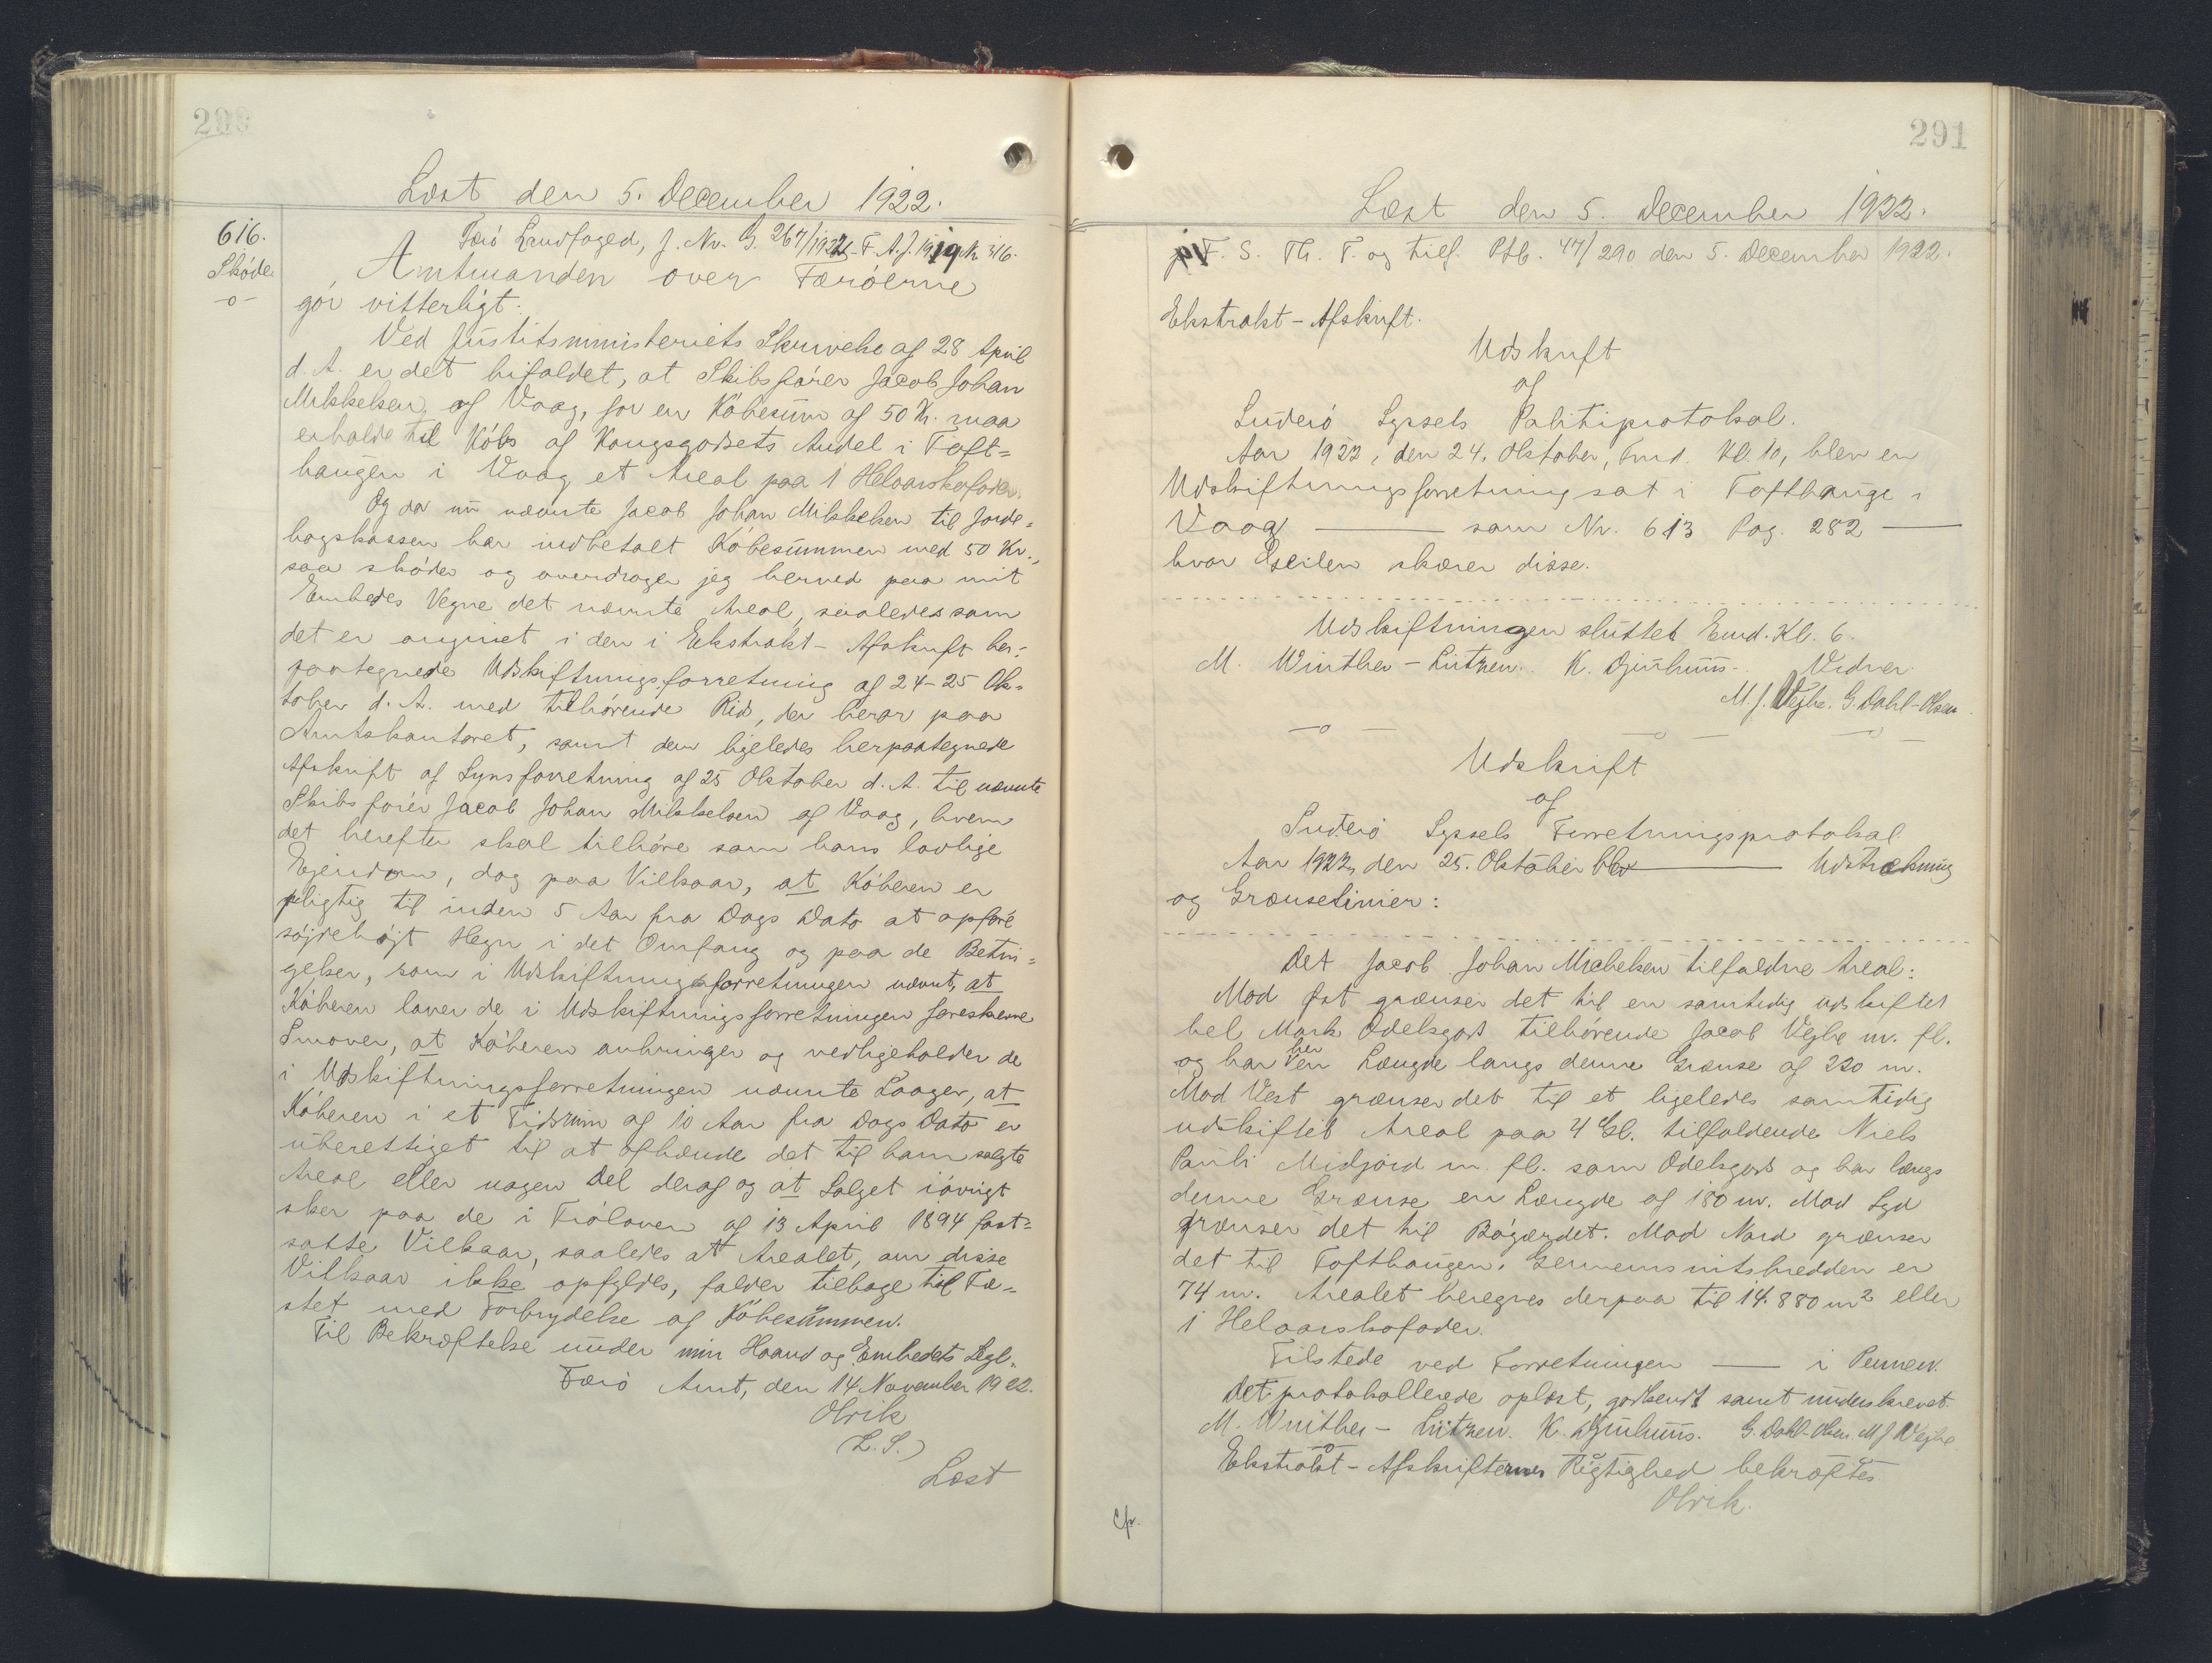 290
Læst den 5. December 1922.
616.
Skøde.
-o-
Færö Landfoged, J. Nr. G. 267/1922. F. A. J. 1919 Nr. 316.
Amtmanden over Færöerne
gör vitterligt:
Ved Justitsministeriets Skrivelse af 28 April
d. A. er det bifaldet, at Skibsförer Jacob Johan
Mikkelsen, af Vaag, for en Köbesum af 50 Kr. maa
erholde til Köbs af Kongsgodsets Andel i Toft=
haugen i Vaag et Areal paa 1 Helaarskofoder.
Og da nu nævnte Jacob Johan Mikkelsen til Jorde=
bogskassen har indbetalt Köbesummen med 50 Kr.,
saa sköder og overdrager jeg herved paa mit
Embedes Vegne det nævnte Areal, saaledes som
det er angivet i den i Ekstrakt-Afskrift her=
paategnede Udskiftningsforretning af 24-25 Ok=
tober d. A. med tilhörende Rids, der beror paa
Amtskontoret, samt den ligeledes herpaategnede
Afskrift af Synsforretning af 25 Oktober d. A. til nævnte
Skibsförer Jacob Johan Mikkelsen af Vaag, hvem
det herefter skal tilhöre som hans lovlige
Ejendom, dog paa Vilkaar, at Köberen er
pligtig til inden 5 Aar fra Dags Dato at opföre
söjdehöjt Hegn i det Omfang og paa de Betin=
gelser, som i Udskiftningsforretningen nævnt, at
Köberen laver de i Udskiftningsforretningen foreskrevne
Smover, at Köberen anbringer og vedligeholder de
i Udskiftningsforretningen nævnte Laager, at
Köberen i et Tidsrum af 10 Aar fra Dags Dato er
uberettiget til at afhænde det til ham solgte
Areal eller nogen Del deraf og at Salget iövrigt
sker paa de i Fröloven af 13 April 1894 fast=
satte Vilkaar, saaledes at Arealet, om disse
Vilkaar ikke opfyldes, falder tilbage til Fæ=
stet med Forbrydelse af Köbesummen.
Til Bekræftelse under min Haand og Embedets Segl.
Færö Amt, den 14 November 1922.
Olrik
(L. S.)
Læst
291
Læst den 5. December 1922.
F. S. Th. T. og tilf. Ptb. 47/290 den 5. December 1922.
Ekstrakt-Afskrift.
Udskrift
af
Suderö Syssels Politiprotokol.
Aar 1922, den 24. Oktober, Fmd. Kl. 10, blev en
Udskiftningsforretning sat i Tofthauge i
Vaag ——— som Nr. 613 Pag. 282 ——
hvor Greilen skærer disse.
Udskiftningen sluttet Emd. Kl. 6.
M. Winther-Lützen. K. Djurhuus. Vidner
M. J. Vejhe. G. Dahl-Olsen.
—o— —o— —o—
Udskrift
af
Suderö Syssels Forretningsprotokol
Aar 1922, den 25. Oktober blev ——— Udstrækning
og Grænselinier:
Det Jacob Johan Michelsen tilfaldne Areal:
Mod Öst grænser det til en samtidig udskiftet
hel Mark Odelsgods tilhörende Jacob Vejhe m. fl.
og har her en Længde langs denne Grænse af 220 m.
Mod Vest grænser det til et ligeledes samtidig
udskiftet Areal paa 4 Gl. tilfaldende Niels
Pauli Midjord m. fl. som Odelsgods og har langs
denne Grænse en Længde af 180 m. Mod Syd
grænser det til Bögærdet. Mod Nord grænser
det til Tofthaugen. Gennemsnitsbredden er
74 m. Arealet beregnes derpaa til 14.880 m² eller
1 Helaarskofoder.
Tilstede ved Forretningen —— i Pennen.
Det protokollerede oplæst, godkendt samt underskrevet.
M. Winther-Lützen. K. Djurhuus. G. Dahl-Olsen. M J Vejhe
Ekstrakt-Afskrifternes Rigtighed bekræftes.
Olrik.
Cfr.